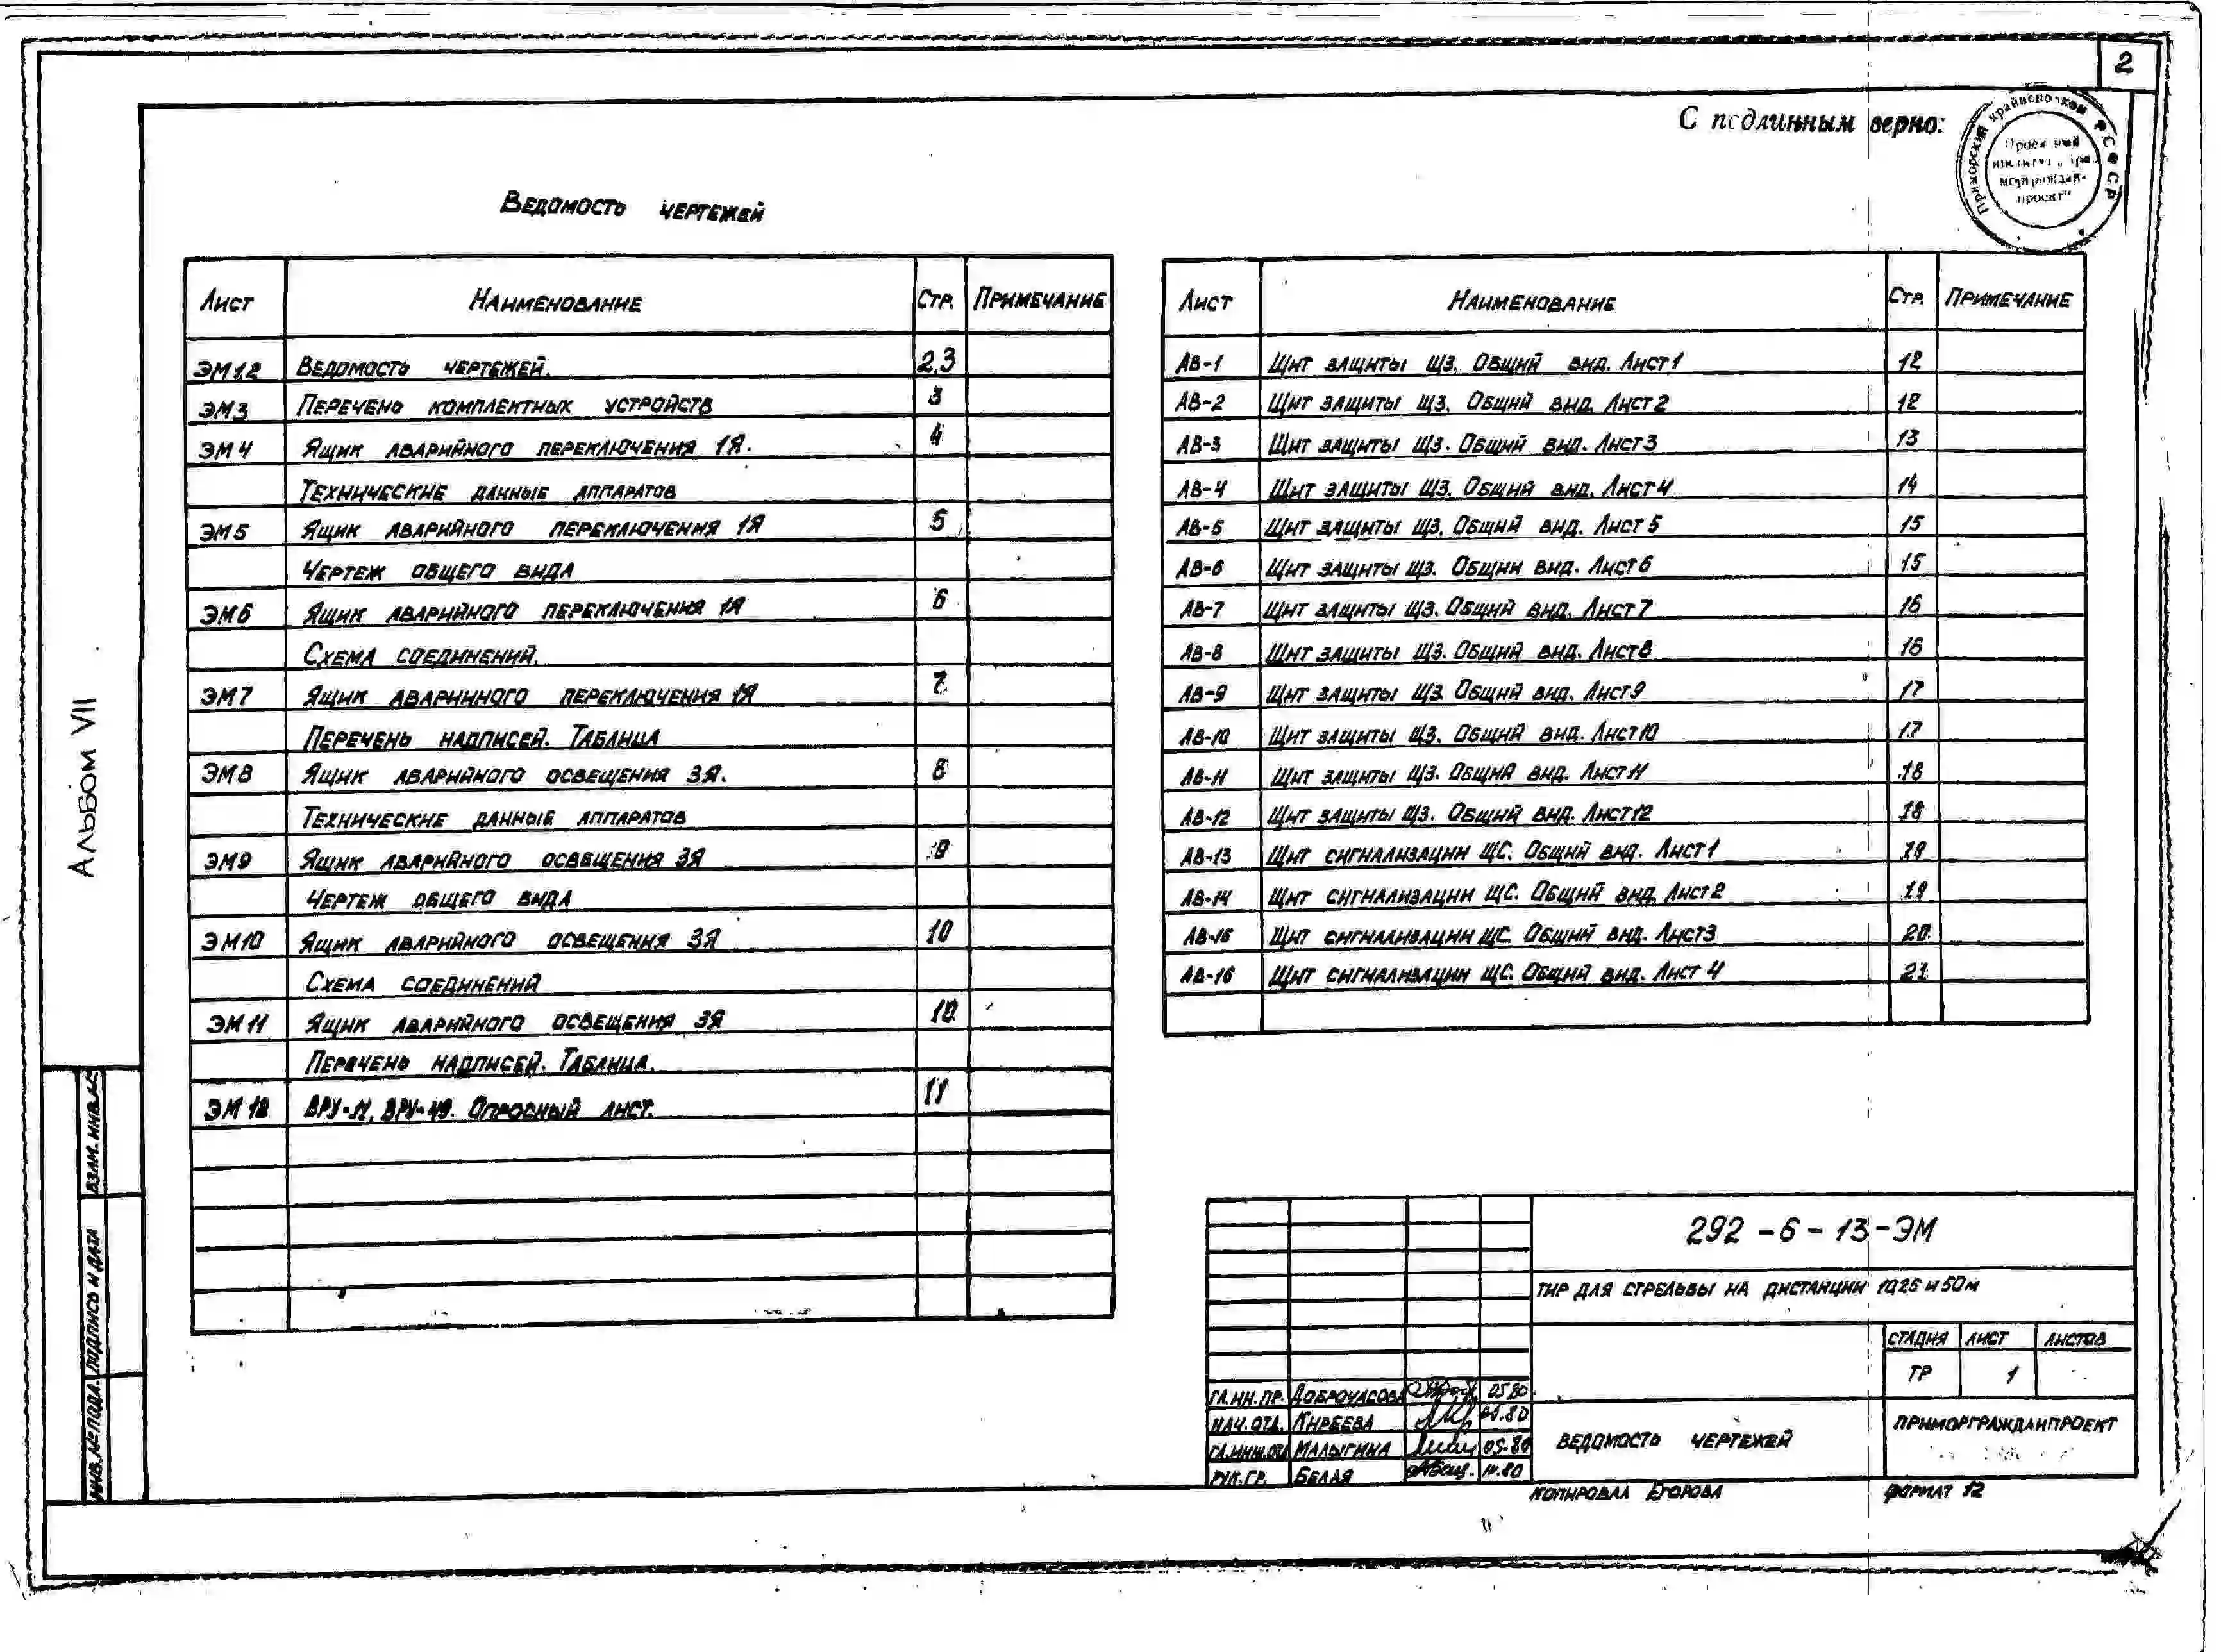 2
С подлинным верно:
Приморский крайисполком РСФСР
Проектный
институт „При-
моргражда​н-
проект"
Ведомость чертежей
Лист Наименование Стр. Примечание
ЭМ1,2 Ведомость чертежей. 2,3
ЭМ3 Перечень комплектных устройств 3
ЭМ4 Ящик аварийного переключения 1Я. 4
Технические данные аппаратов
ЭМ5 Ящик аварийного переключения 1Я 5
Чертеж общего вида
ЭМ6 Ящик аварийного переключения 1Я 6
Схема соединений.
ЭМ7 Ящик аварийного переключения 1Я 7
Перечень надписей. Таблица
ЭМ8 Ящик аварийного освещения 3Я. 8
Технические данные аппаратов
ЭМ9 Ящик аварийного освещения 3Я 9
Чертеж общего вида
ЭМ10 Ящик аварийного освещения 3Я 10
Схема соединений
ЭМ11 Ящик аварийного освещения 3Я 10
Перечень надписей. Таблица.
ЭМ12 ВРУ-11, ВРУ-49. Опросный лист. 11
Лист Наименование Стр. Примечание
АВ-1 Щит защиты ЩЗ. Общий вид. Лист 1 12
АВ-2 Щит защиты ЩЗ. Общий вид. Лист 2 12
АВ-3 Щит защиты ЩЗ. Общий вид. Лист 3 13
АВ-4 Щит защиты ЩЗ. Общий вид. Лист 4 14
АВ-5 Щит защиты ЩЗ. Общий вид. Лист 5 15
АВ-6 Щит защиты ЩЗ. Общий вид. Лист 6 15
АВ-7 Щит защиты ЩЗ. Общий вид. Лист 7 16
АВ-8 Щит защиты ЩЗ. Общий вид. Лист 8 16
АВ-9 Щит защиты ЩЗ Общий вид. Лист 9 17
АВ-10 Щит защиты ЩЗ. Общий вид. Лист 10 17
АВ-11 Щит защиты ЩЗ. Общий вид. Лист 11 18
АВ-12 Щит защиты ЩЗ. Общий вид. Лист 12 18
АВ-13 Щит сигнализации ЩС. Общий вид. Лист 1 19
АВ-14 Щит сигнализации ЩС. Общий вид. Лист 2 19
АВ-15 Щит сигнализации ЩС. Общий вид. Лист 3 20
АВ-16 Щит сигнализации ЩС. Общий вид. Лист 4 21
Альбом VII
Взам. инв.№
Подпись и дата
Инв.№ подл.
292-6-13-ЭМ
Тир для стрельбы на дистанции 10,25 и 50м
Стадия Лист Листов
ТР 1
Гл.ин.пр. Доброчасова 05.80
Нач.отд. Киреева 05.80
Гл.инж.отд Малыгина 05.80
Рук.гр. Белая 14.80
Ведомость чертежей
Приморгражданпроект
Копировал Егорова
Формат 12